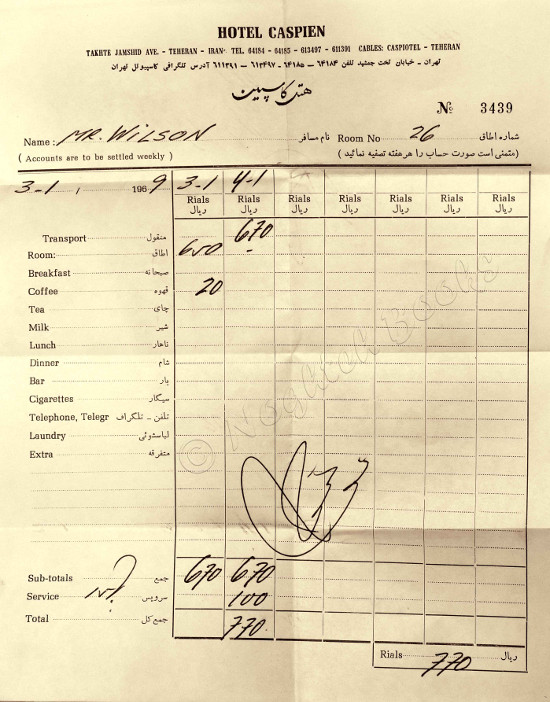 HOTEL CASPIEN
TAKHTE JAMSHID AVE. - TEHERAN - IRAN· TEL. 64184 - 64185 - 613497 - 611391 CABLES: CASPIOTEL - TEHERAN
تهران - خیابان تخت جمشید تلفن ۶۴۱۸۴ - ۶۴۱۸۵ - ۶۱۳۴۹۷ - ۶۱۱۳۹۱ آدرس تلگرافی کاسپیوتل تهران
هتل کاسپین
№ 3439
Name: MR. WILSON نام مسافر Room No 26 شماره اطاق
( Accounts are to be settled weekly ) (متمنی است صورت حساب را هر هفته تصفیه نمائید)
3-1, 1969 3-1 4-1
Rials Rials Rials Rials Rials Rials Rials
ریال ریال ریال ریال ریال ریال ریال
Transport منقول 670
Room: اطاق 650
Breakfast صبحانه
Coffee قهوه 20
Tea چای
Milk شیر
Lunch ناهار
Dinner شام
Bar بار
Cigarettes سیگار
Telephone, Telegr تلفن - تلگراف
Laundry لباسشوئی
Extra متفرقه
© Neglected Books
Sub-totals جمع 670 670
Service سرویس 100
Total جمع کل 770
Rials 770 ریال